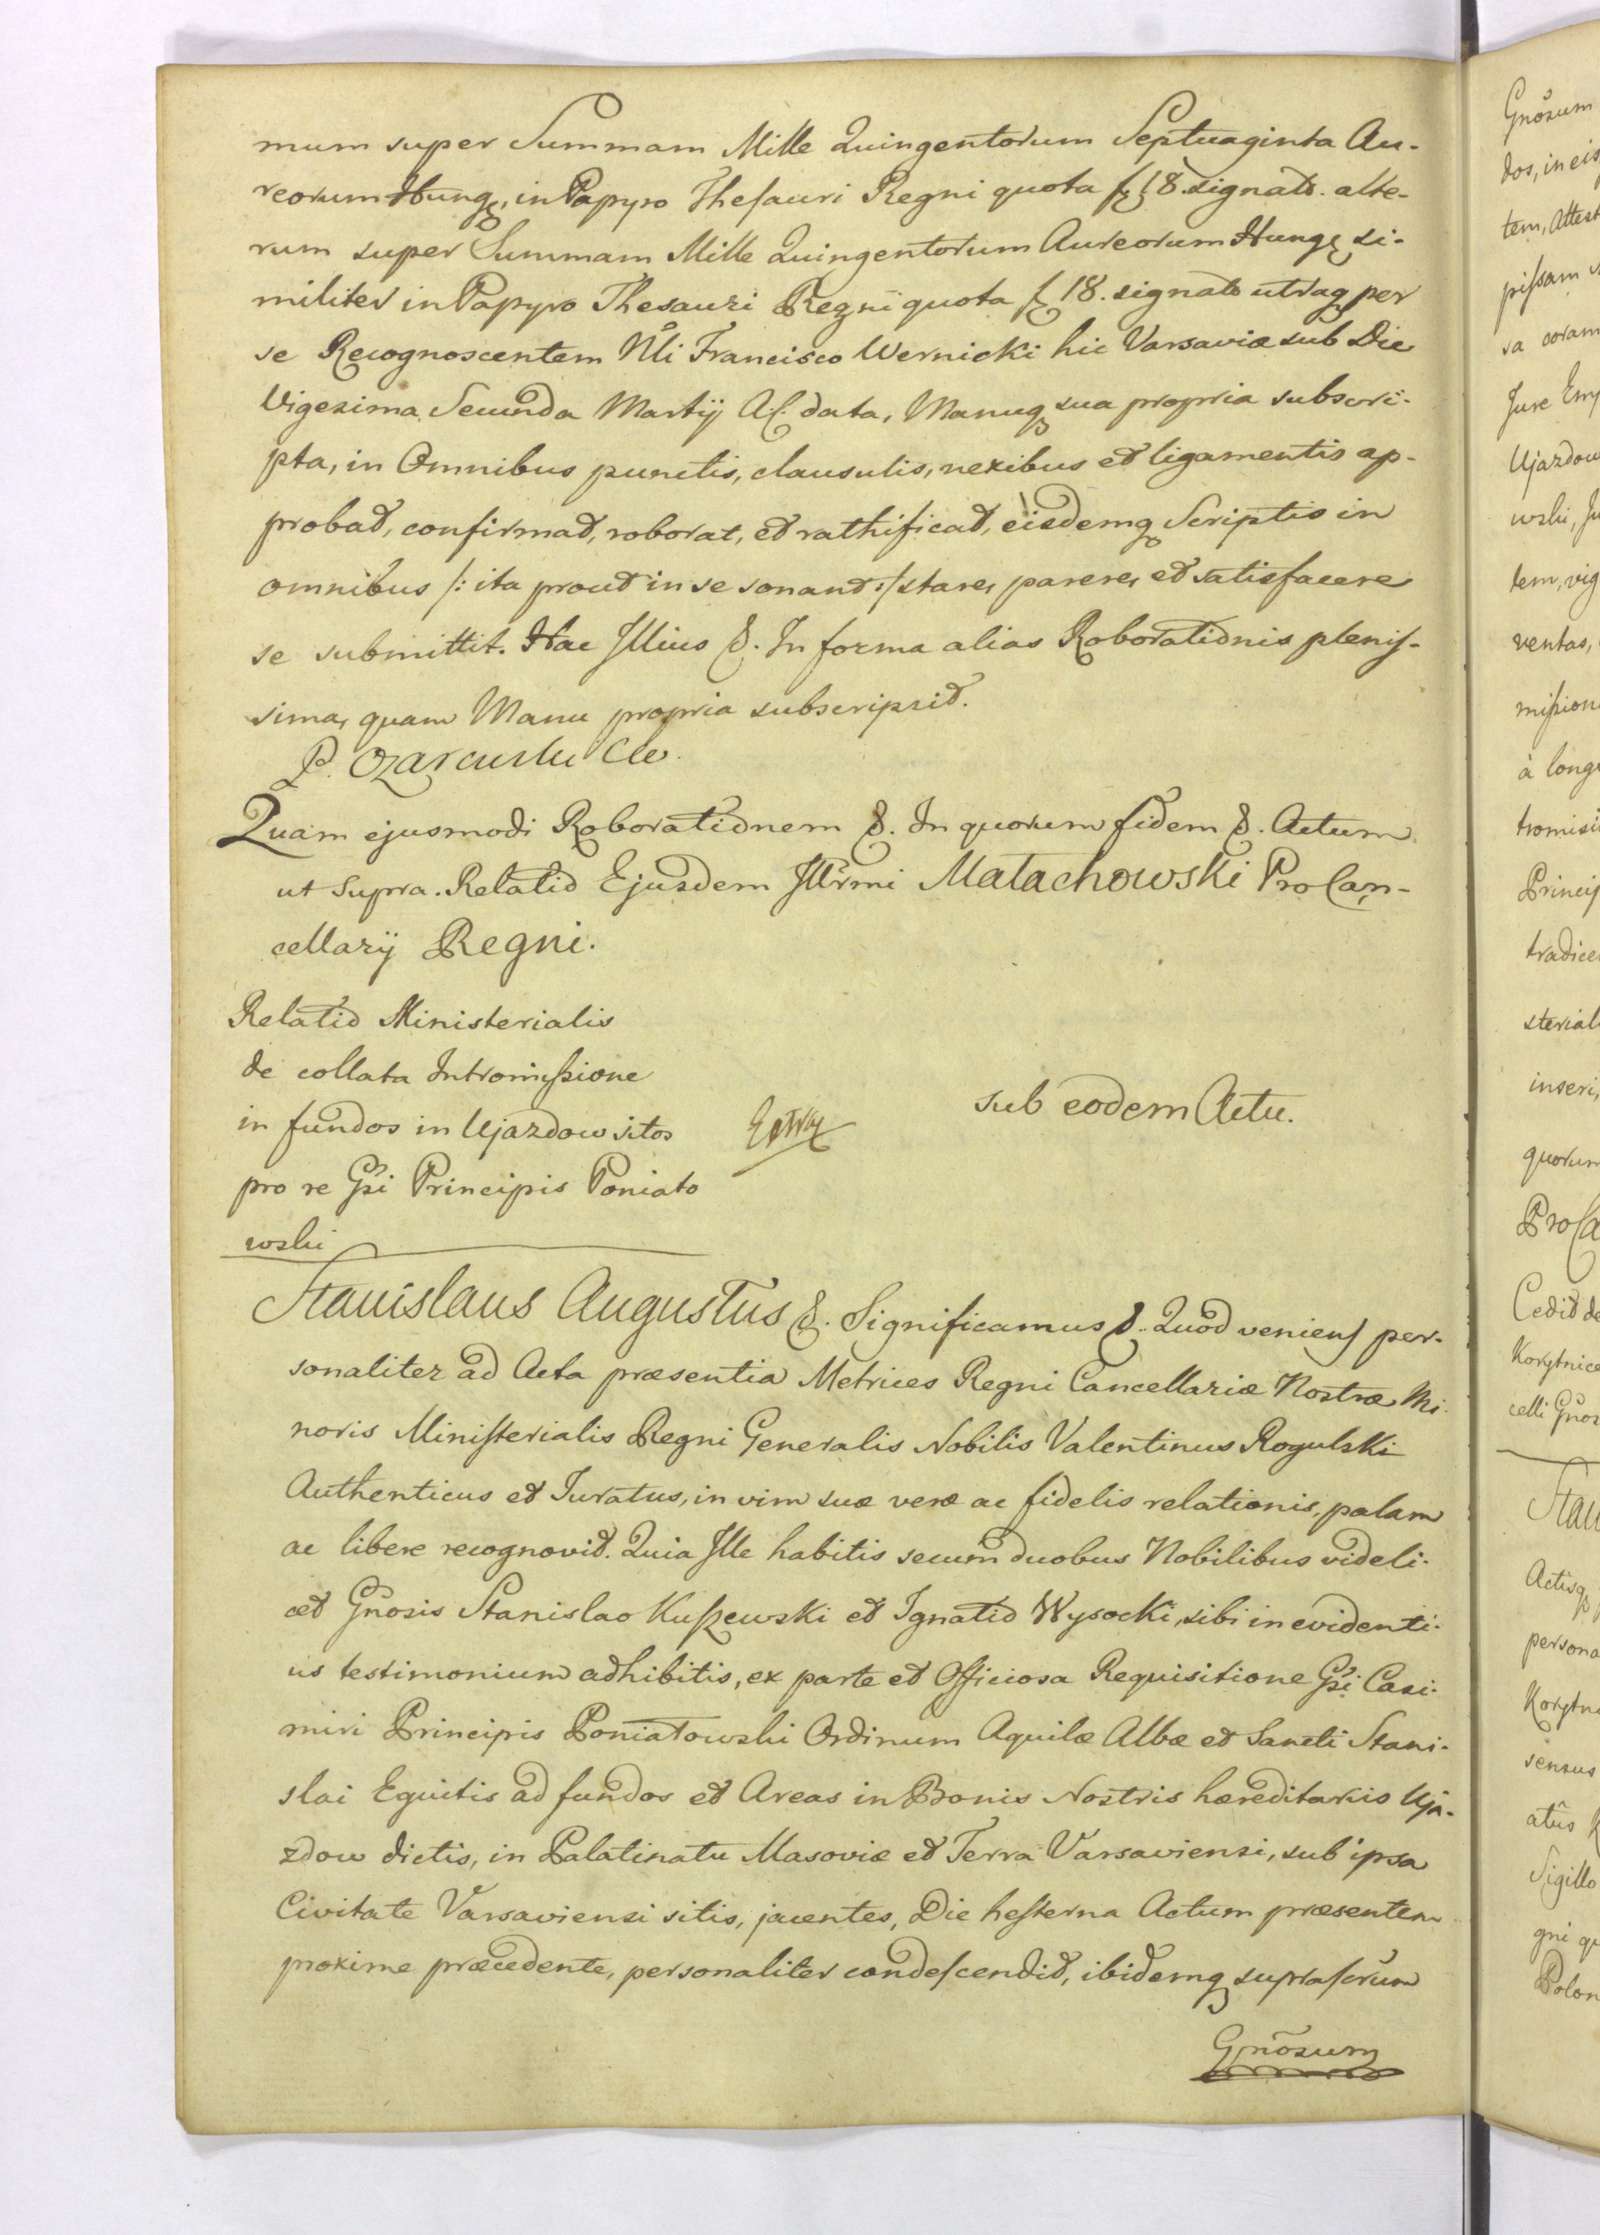 mum super Summam Mille Quingentorum Septuaginta Au-
reorum Hung, in Papyro Thesauri Regni quota f 18. signato. alte-
rum super Summam Mille Quingentorum Aureorum Hung si-
militer in Papyro Thesauri Regni quota f 18. signato utraq per
se Recognoscentem Nli Francisco Wernicki hic Varsaviæ sub Die
Vigesima Secunda Martij Ac. data, Manuq sua propria subscri-
pta, in Omnibus punctis, clausulis, nexibus et ligamentis ap-
probat, confirmat, roborat, et rathificat, eisdemq Scriptis in
omnibus /: ita prout in se sonant :/ stare, parere, et satisfacere
se submittit. Hac Illius &. In forma alias Roborationis plenis-
sima, quam Manu propria subscripsit.
P.
Quam ejusmodi Roborationem &. In quorum fidem &. Actum
ut Supra. Relatio Ejusdem Illrmi Małachowski ProCan-
cellarij Regni.
Relatio Ministerialis
de collata Intromissione
in fundos in Ujazdow sitos
pro re Gsi Principis Poniato
wski
sub eodem Actu.
Stanislaus Augustus &. Significamus &. Quod veniens per-
sonaliter ad Acta præsentia Metrices Regni Cancellariæ Nostræ Mi-
noris Ministerialis Regni Generalis Nobilis Valentinus Rogulski
Authenticus et Juratus, in vim suæ veræ ac fidelis relationis, palam
ac libere recognovit. Quia Ille habitis secum duobus Nobilibus videli-
cet Gnosis Stanislao Kuszewski et Ignatio Wysocki, sibi in evidenti-
us testimonium adhibitis, ex parte et Officiosa Requisitione Gsi Casi-
miri Principis Poniatowski Ordinum Aquilæ Albæ et Sancti Stani-
slai Equitis ad fundos et Areas in Bonis Nostris hæreditariis Uja-
zdow dictis, in Palatinatu Masoviæ et Terra Varsaviensi, sub ipsa
Civitate Varsaviensi sitis, jacentes, Die hesterna Actum præsentem
proxime præcedente, personaliter condescendit, ibidemq suprascrum
Gnosum
Gnosum
dos, in eis
tem, Attest
pissam
sa coram
Jure Emp
Ujazdow
wski, Ju
tem, vig
ventas,
mission
à long
tromisi
Princip
tradice
sterial
inseri,
quorum
ProCa
Cedit de
Korytnice
celli Gnos
Stan
Actisq
persona
Korytn
sensus
atus
Sigillo
gni qu
Polon